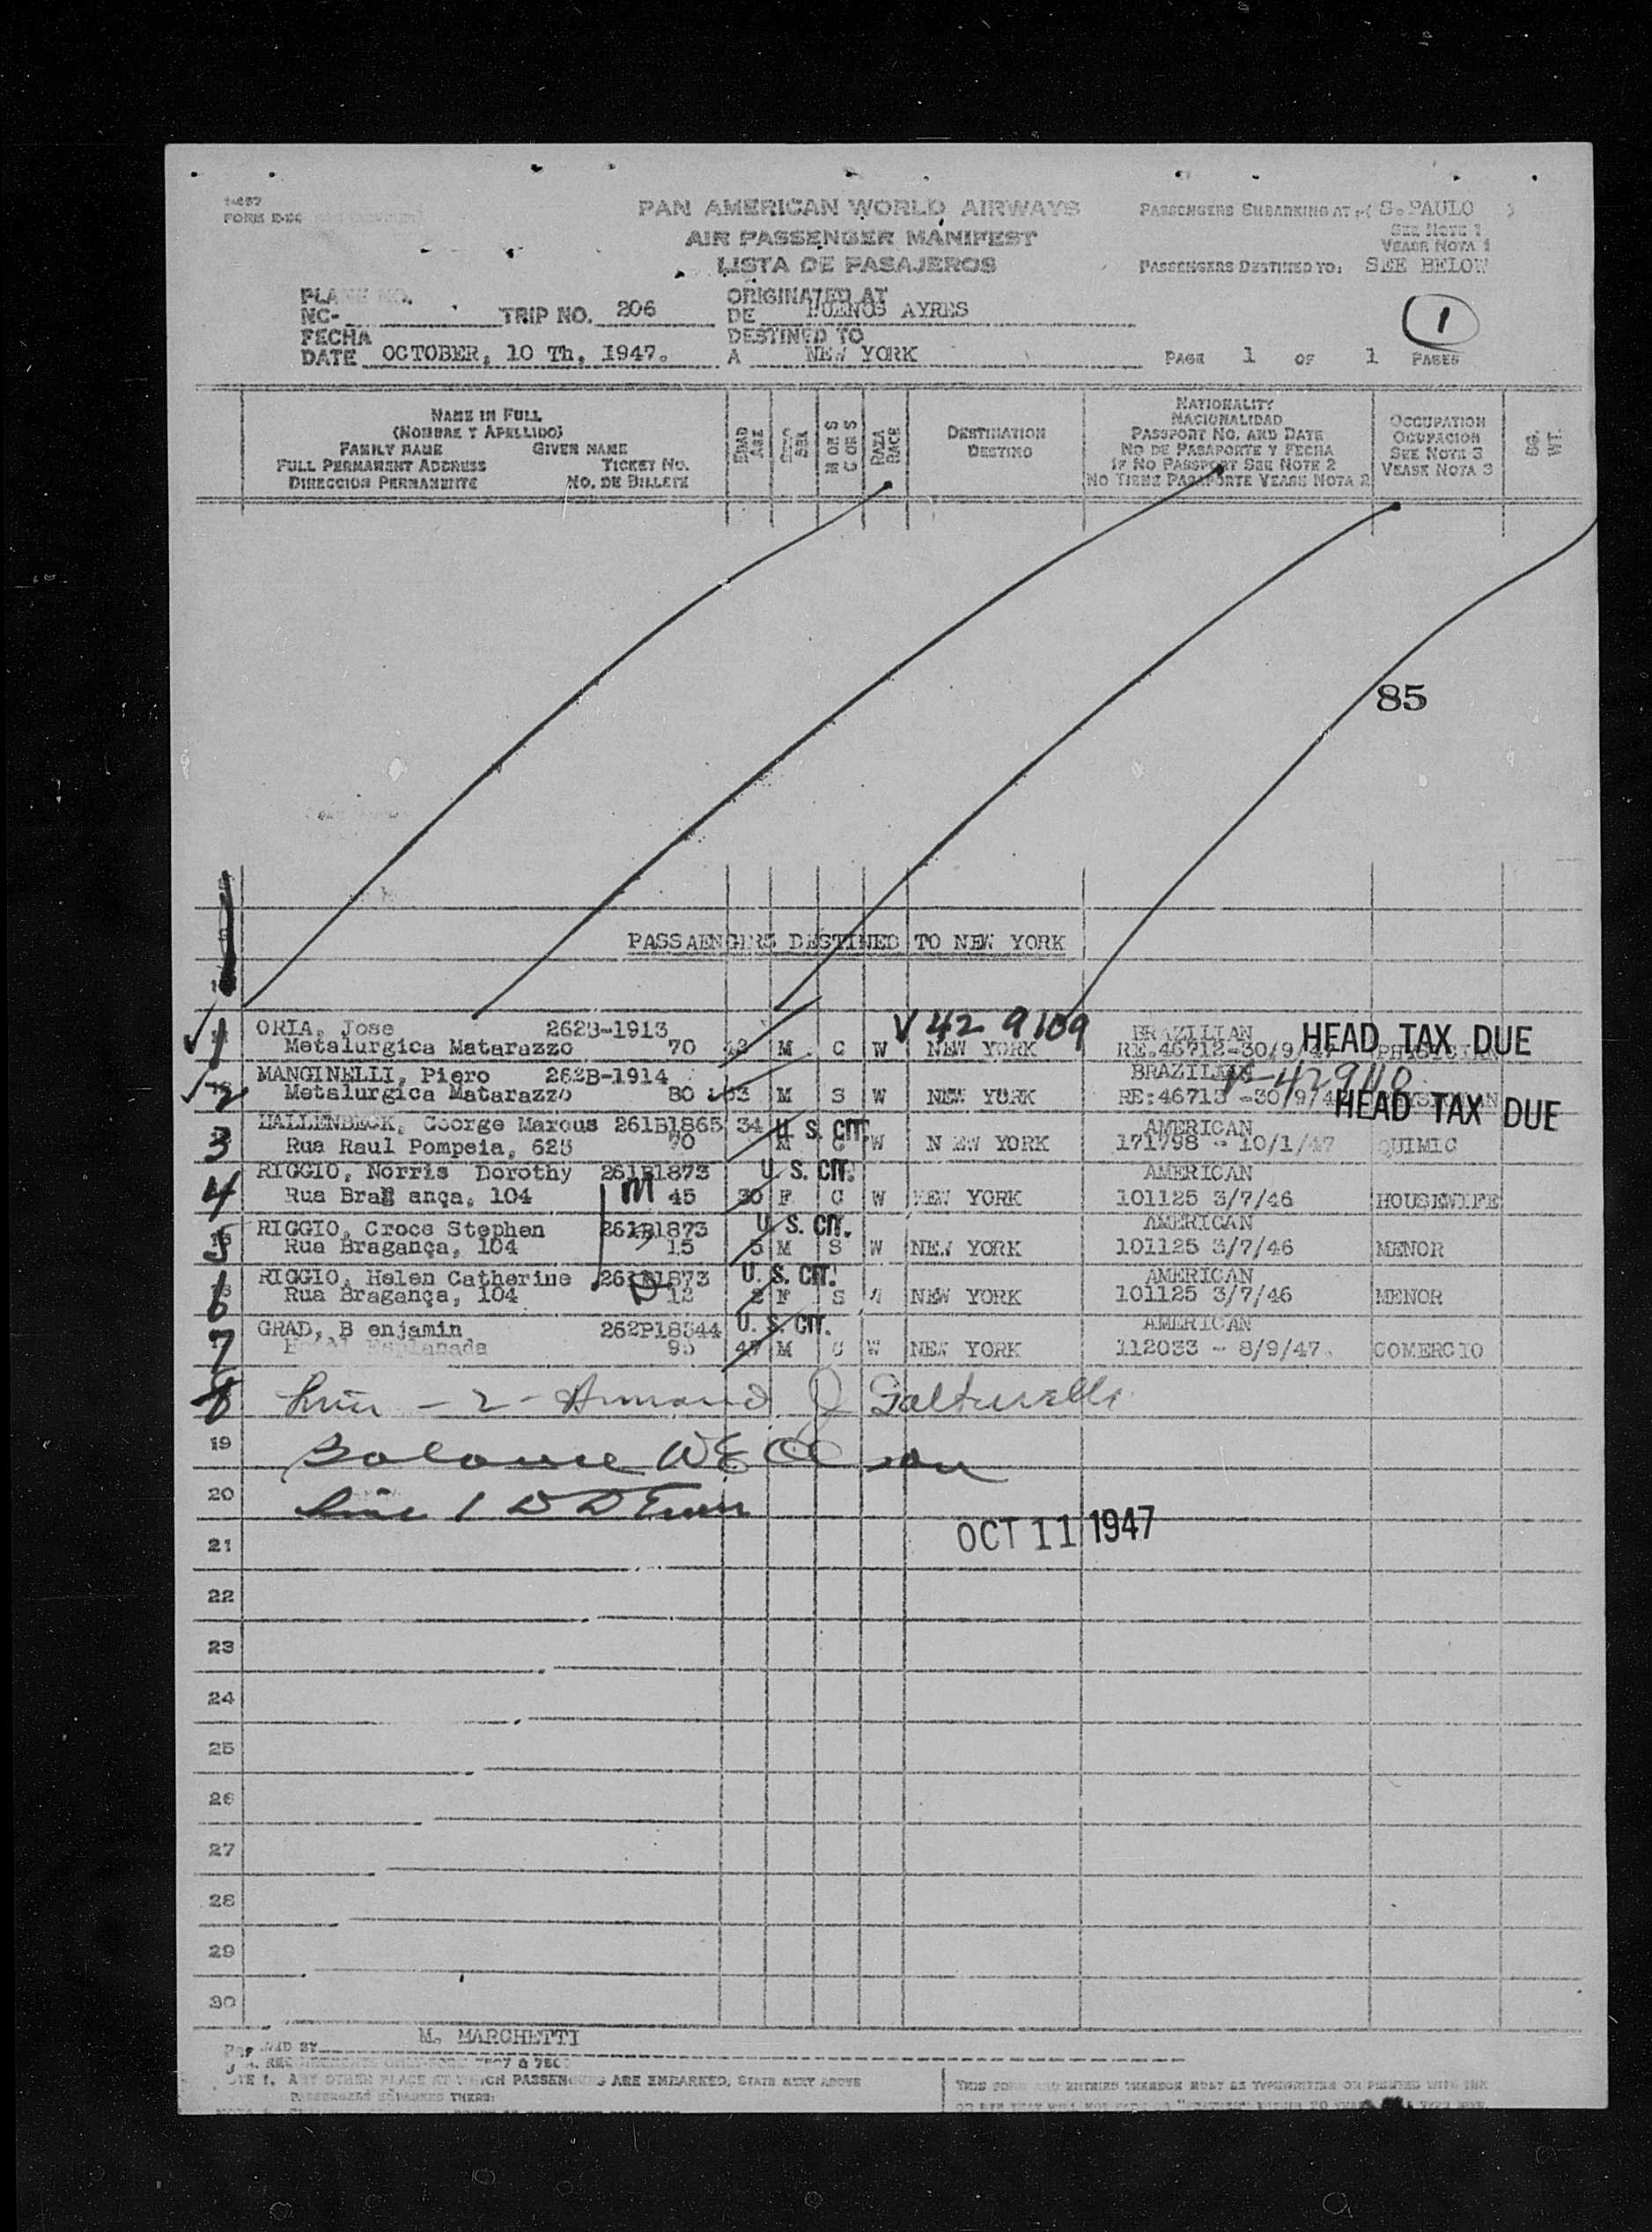 FORM E-24
PAN AMERICAN WORLD AIRWAYS
AIR PASSENGER MANIFEST
LISTA DE PASAJEROS
PASSENGERS EMBARKING AT :-( S. PAULO )
SEE NOTE 1
VEASE NOTA 1
PASSENGERS DESTINED TO: SEE BELOW
PLANE NO.
NC-
TRIP NO. 206
ORIGINATED AT
DE BUENOS AYRES
FECHA
DATE OCTOBER, 10 Th, 1947.
DESTINED TO
A NEW YORK
1
PAGE 1 OF 1 PAGES
NAME IN FULL
(NOMBRE Y APELLIDO)
FAMILY NAME GIVEN NAME
FULL PERMANENT ADDRESS TICKET NO.
DIRECCION PERMANENTE NO. DE BILLETE
EDAD
AGE
SEXO
SEX
M OR S
C OR S
RAZA
RACE
DESTINATION
DESTINO
NATIONALITY
NACIONALIDAD
PASSPORT NO. AND DATE
NO DE PASAPORTE Y FECHA
IF NO PASSPORT SEE NOTE 2
NO TIENE PASAPORTE VEASE NOTA 2
OCCUPATION
OCUPACION
SEE NOTE 3
VEASE NOTA 3
WT.
85
PASSAENGERS DESTINED TO NEW YORK
1 ORIA, Jose 262B-1913 V 42 9109 BRAZILIAN HEAD TAX DUE
Metalurgica Matarazzo 70 M C W NEW YORK RE.46712-30/9/47
2 MANGINELLI, Piero 262B-1914 BRAZILIAN
Metalurgica Matarazzo 80 M S W NEW YORK RE:46713 -30/9/47 HEAD TAX DUE
3 HALLENBECK, George Marcus 261B1865 34 U. S. CIT. AMERICAN
Rua Raul Pompeia, 625 70 M C W N EW YORK 171798 - 10/1/47 QUIMIC
4 RIGGIO, Norris Dorothy 261B1873 U. S. CIT. AMERICAN
Rua Brag ança, 104 M 45 30 F C W NEW YORK 101125 3/7/46 HOUSEWIFE
5 RIGGIO, Croce Stephen 261B1873 U. S. CIT. AMERICAN
Rua Bragança, 104 15 5 M S W NEW YORK 101125 3/7/46 MENOR
6 RIGGIO, Helen Catherine 261B1873 U. S. CIT. AMERICAN
Rua Bragança, 104 12 2 F S W NEW YORK 101125 3/7/46 MENOR
7 GRAD, B enjamin 262P18344 U. S. CIT. AMERICAN
Hotel Esplanada 95 47 M C W NEW YORK 112033 - 8/9/47. COMERCIO
8 Line - 2 - Armand J
19 Balance
20 Line 1
OCT 11 1947
21
22
23
24
25
26
27
28
29
30
M. MARCHETTI
ANY OTHER PLACE AT WHICH PASSENGERS ARE EMBARKED, STATE NEXT ABOVE
PASSENGERS EMBARKED THERE:
THIS FORM AND ENTRIES THEREON MUST BE TYPEWRITTEN OR PRINTED WITH INK